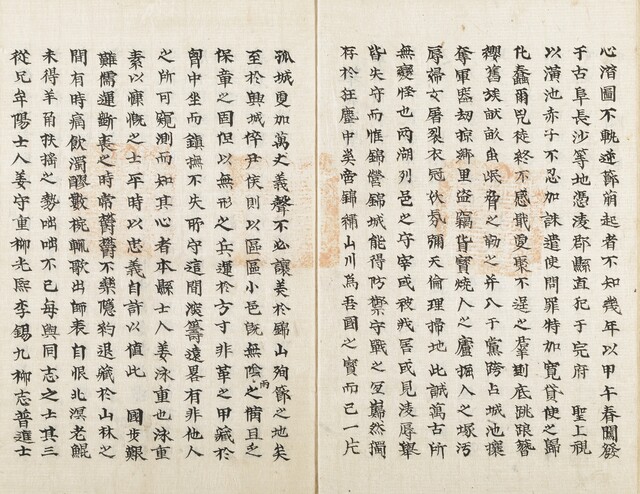 心潛圖不軌連節朔起者不知幾年以甲午春闖發
于古阜長沙等地憑凌郡縣直犯于完府 聖上視
以潢池赤子不忍加誅遣使問罪特加寬貸使之歸
化蠢爾兇徒終不感戢更聚不逞之羣則底跳踉簪
纓舊族畎畝虫氓脅之勒之幷入于黨跨占城池攘
奪軍器劫掠鄕里盜竊貨寶燒人之廬掘人之塚汚
辱婦女屠裂衣冠妖氛彌天倫理掃地此誠萬古所
無變怪也兩湖列邑之守宰或被戕害或見淩辱擧
皆失守而惟錦營錦城能得防禦守戰之宜巋然獨
存於狂塵中矣宮錦稱山川爲吾國之寶而已一片
孤城更加萬丈義聲不必讓美於錦山殉節之地矣
至於興城倅尹侯則以區區小邑旣無陰雨之備且乏
保章之固但以無形之兵運於方寸非革之甲藏於
胷中坐而鎭撫不失所守這間演籌遠畧有非他人
之所可窺測而知其心者本縣士人姜泳重也泳重
素以慷慨之士平時以忠義自許以値此 國步艱
難儒運斷喪之時常欝欝不樂隱約退藏於山林之
間有時痛飮濁醪數椀輒歌出師表自恨北溟老鯤
未得羊角扶搖之勢咄咄不已每與同志之士其三
從兄牟陽士人姜守重柳光熙李錫九柳志普進士